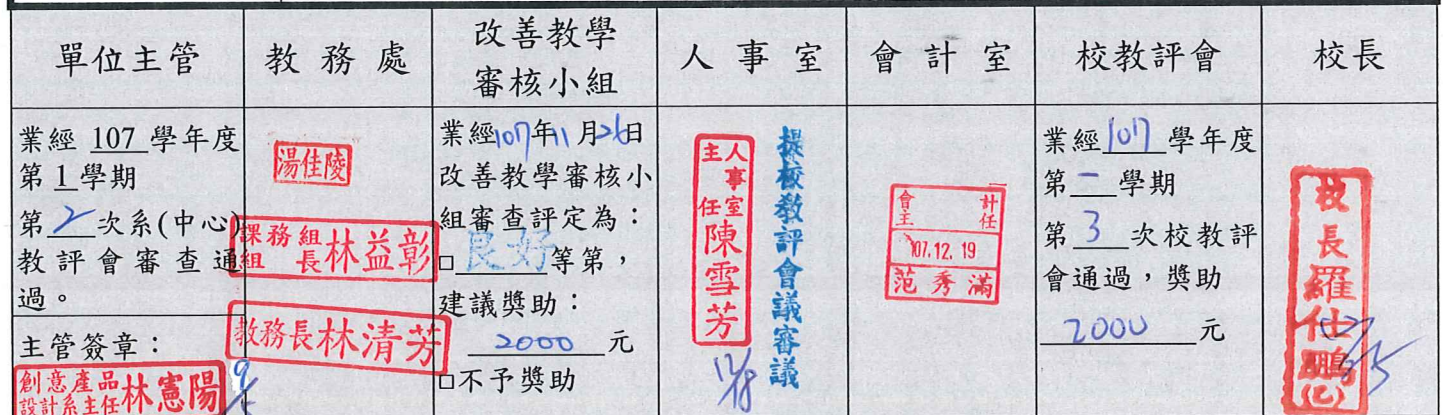 單位主管
教務處
改善教學
審核小組
人事室
會計室
校教評會
校長
業經 107 學年度
第 1 學期
第 2 次系(中心)
教評會審查通
過。
主管簽章：
創意產品
設計系主任
林憲陽
湯佳陵
課務組
組長
林益彰
教務長林清芳
業經107年11月26日
改善教學審核小
組審查評定為：
□良好等第，
建議獎助：
2000元
□不予獎助
人事室
主任
陳雪芳
12/18
提校教評會議審議
會計
主任
107.12.19
范秀滿
業經107學年度
第一學期
第3次校教評
會通過，獎助
2000元
校長羅仕鵬(乙)